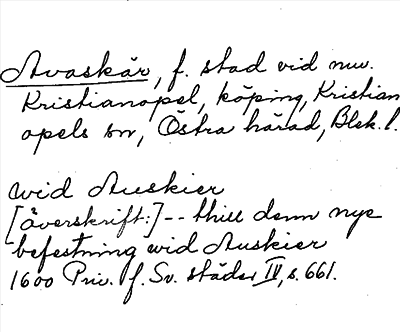 Avaskär, f. stad vid nuv.
Kristianopel, köping, Kristian
opels sn, Östra härad, Blek. l.
wid Auskier
[överskrift:] -- thill denn nye
befestning wid Auskier
1600 Priv. f. Sv. städer IV, s. 661.